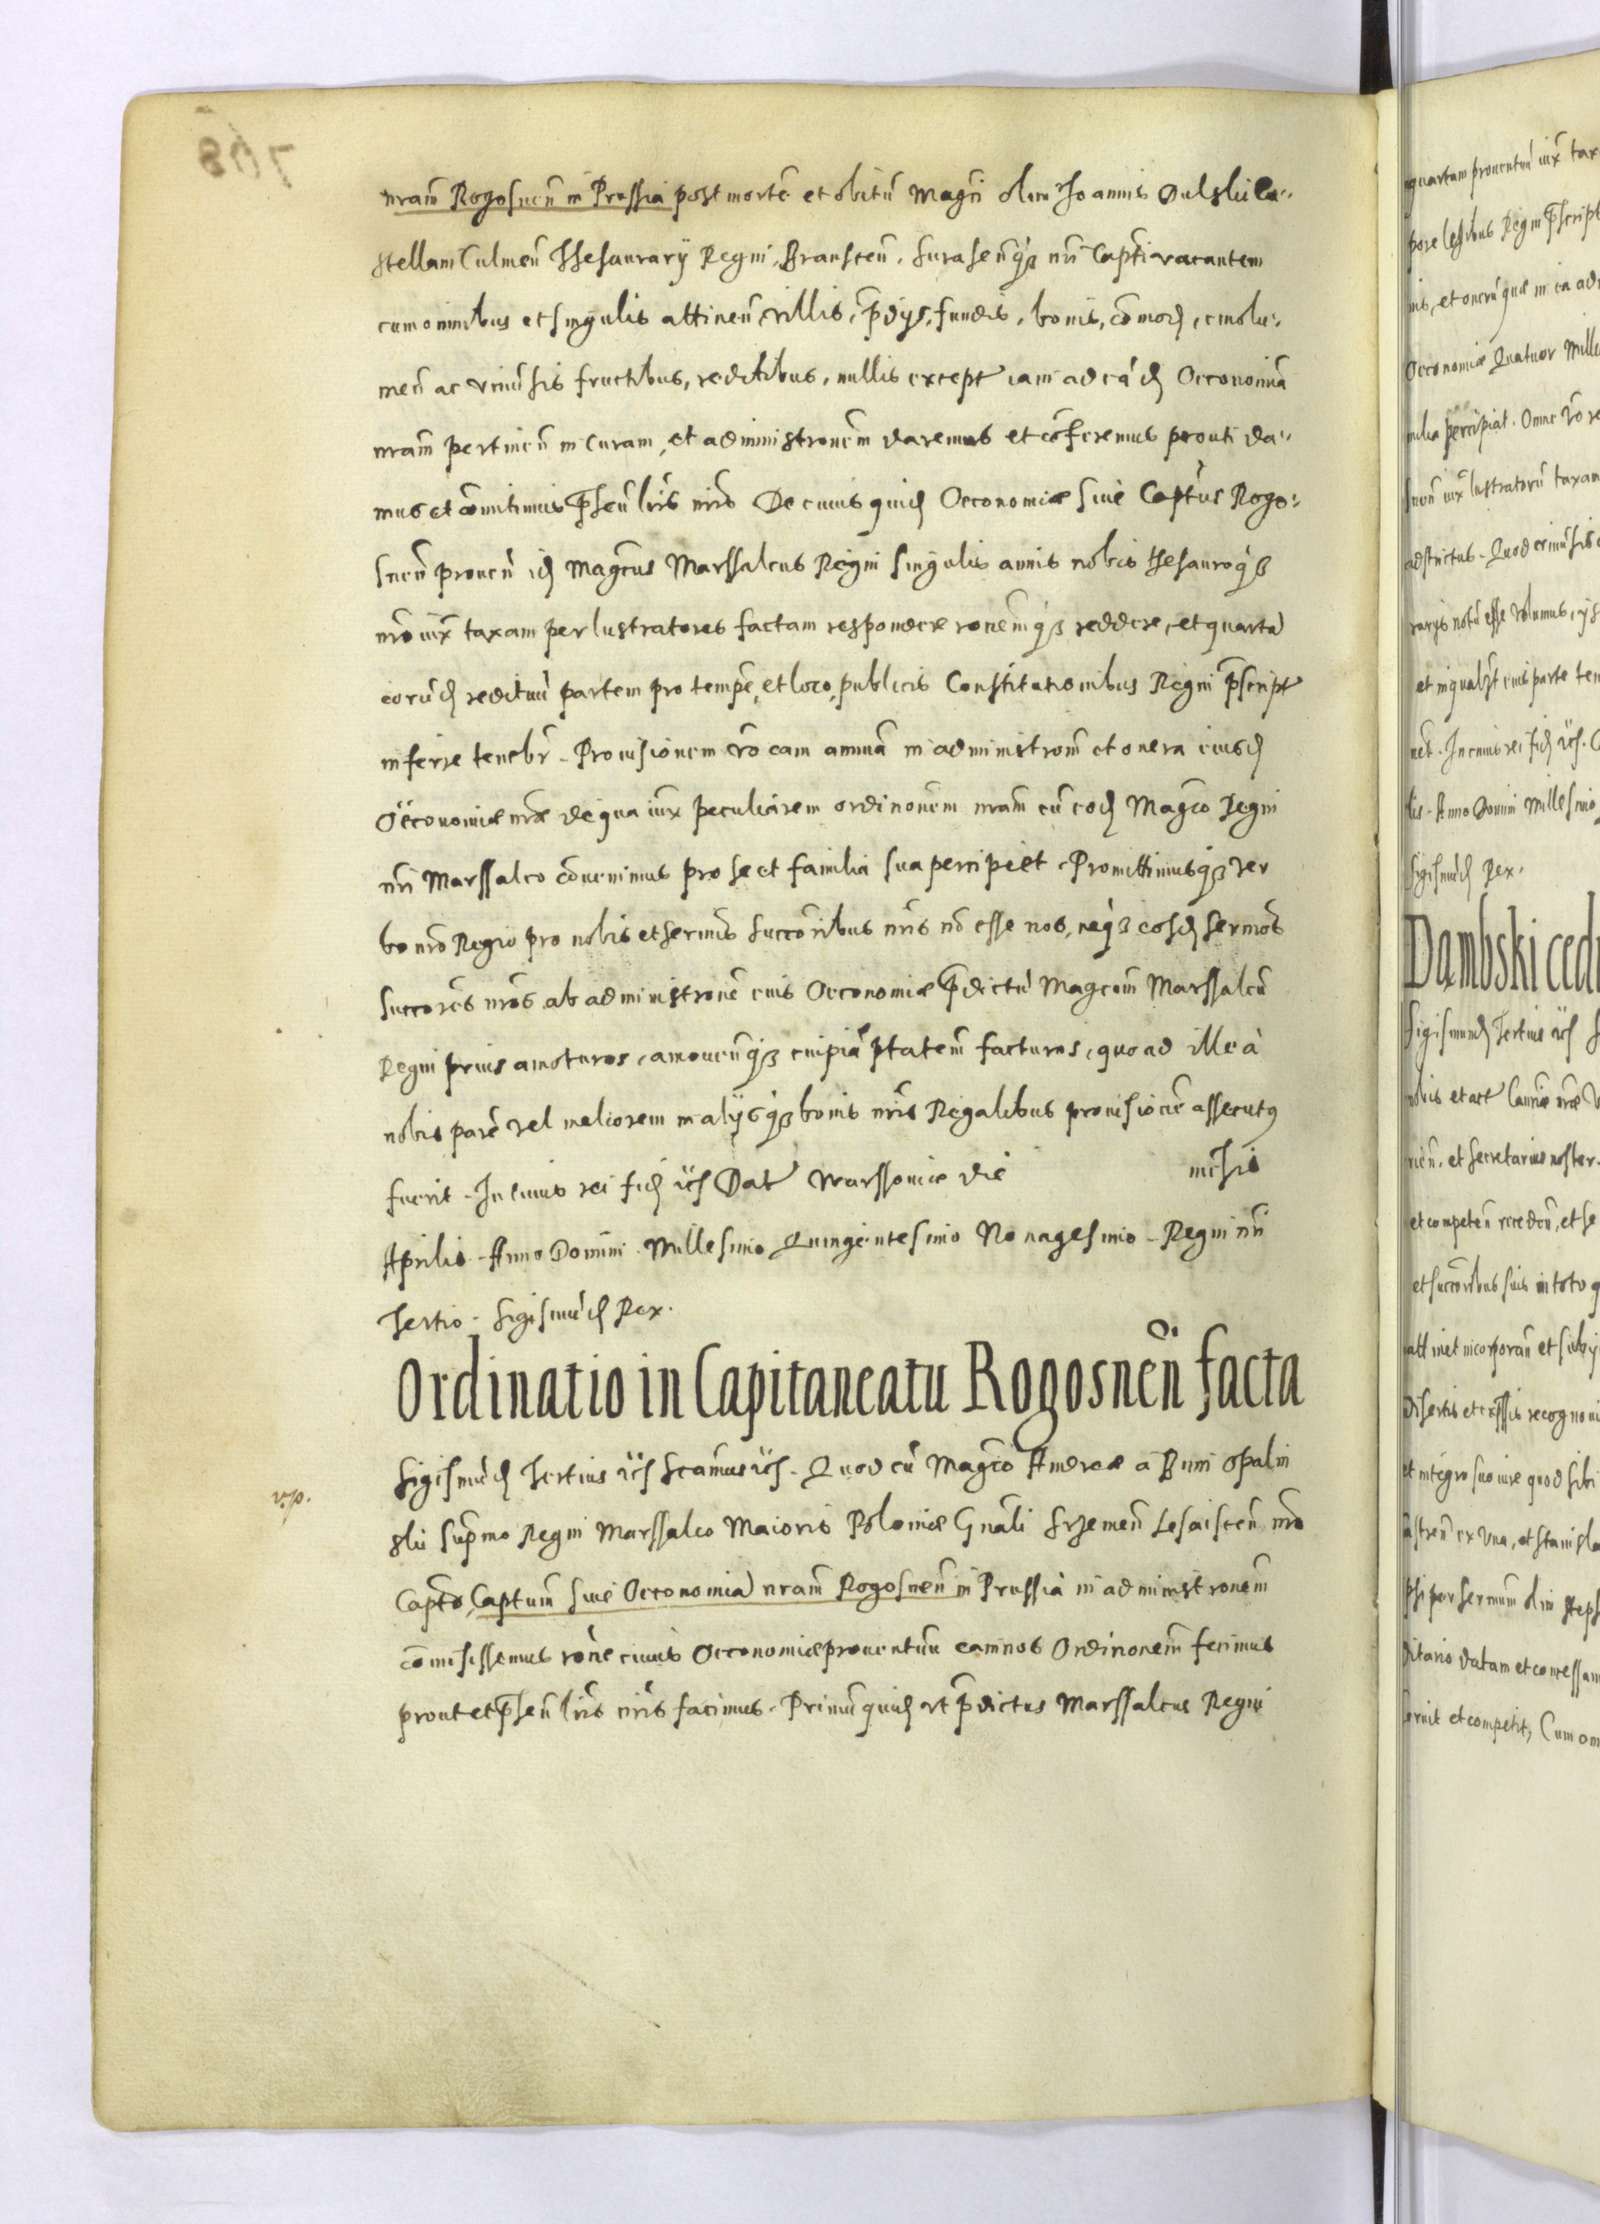 768
nram Rogosnen in Prussia post mortē et obitū Magci olim Joannis Dulskii Ca-
stellani Culmen Thesaurarÿ Regni, Branscen, Surasenq nri Capti vacantem
cum omnibus et singulis attinen, villis, pdÿs, fundis, bonis, comod, emolu-
men ac universis fructibus, reditibus, nullis except iam ad eād Oeconomiā
nram pertinen in Curam, et administronem daremus et conferemus prouti da-
mus et comitimus psen lris nris De cuius quid Oeconomiæ sive Captus Rogo-
snen proven id Magcus Marssalcus Regni singulis annis nobis thesauroq
nro iux taxam per lustratores factam respondere ronemq reddere, et quartā
eorūd redituū partem pro tempe, et loco, publicis Constitutionibus Regni pscript
inferre tenebr. Provisionem vo eam annuā in administrom et onera eiusd
Oeconomiæ nræ de qua iux peculiarem ordinonem nram cū eod Magco Regni
nri Marssalco convenimus pro se et familia sua percipiet. Promittimusq ver
bo nro Regio pro nobis et sermis succoribus nris nō esse nos, neq eosd sermos
succores nros ab administrone eius Oeconomiæ pdictū Magcum Marssalcū
Regni prius amoturos, amovenq cuipiā ptatem facturos, quoad ille à
nobis parē vel meliorem in alÿsq bonis nris Regalibus provisionē assecutus
fuerit. In cuius rei fid etc Dat Warssoviæ die mēsis
Aprilis. Anno Domini Millesimo Quingentesimo Nonagesimo. Regni nri
Tertio. Sigismūd Rex.
Ordinatio in Capitaneatu Rogosnen facta
Sigismūd Tertius etc Scamus etc. Quod cū Magco Andreæ à Bnin Opalin
v.p.
skii supmo Regni Marssalco Maioris Poloniæ Gnali Srzemen Lesaiscen nro
Capto Captum sive Oeconomiā nram Rogosnen in Prussia in administronem
comisissemus rone cuius Oeconomiæ proventuū eam nos Ordinonem fecimus
prout et psen lris nris facimus. Primū quid ut pdictus Marssalcus Regni
quartam proventuū iux tax
Regni pscript
et onerū quæ in ea ad
Oeconomiæ Quatuor Mille
percipiat. Omne vo re
iux lustratorū taxam
adstrictus. Quod
notū esse volumus,
parte ten
In cuius rei fid etc.
Anno Domini Millesimo
Sigismūd Rex.
Dambski cedi
Sigismund Tertius etc
nobis et act Canriæ nræ
et Secretarius noster.
et competen recedens, et se
et succoribus suis in toto
attinet incorporan et
recogno
et integro suo iure quod sibi
ex una, et Stanisla
per sermum olim Steph
datam et concessam
servit et competit, Cum om